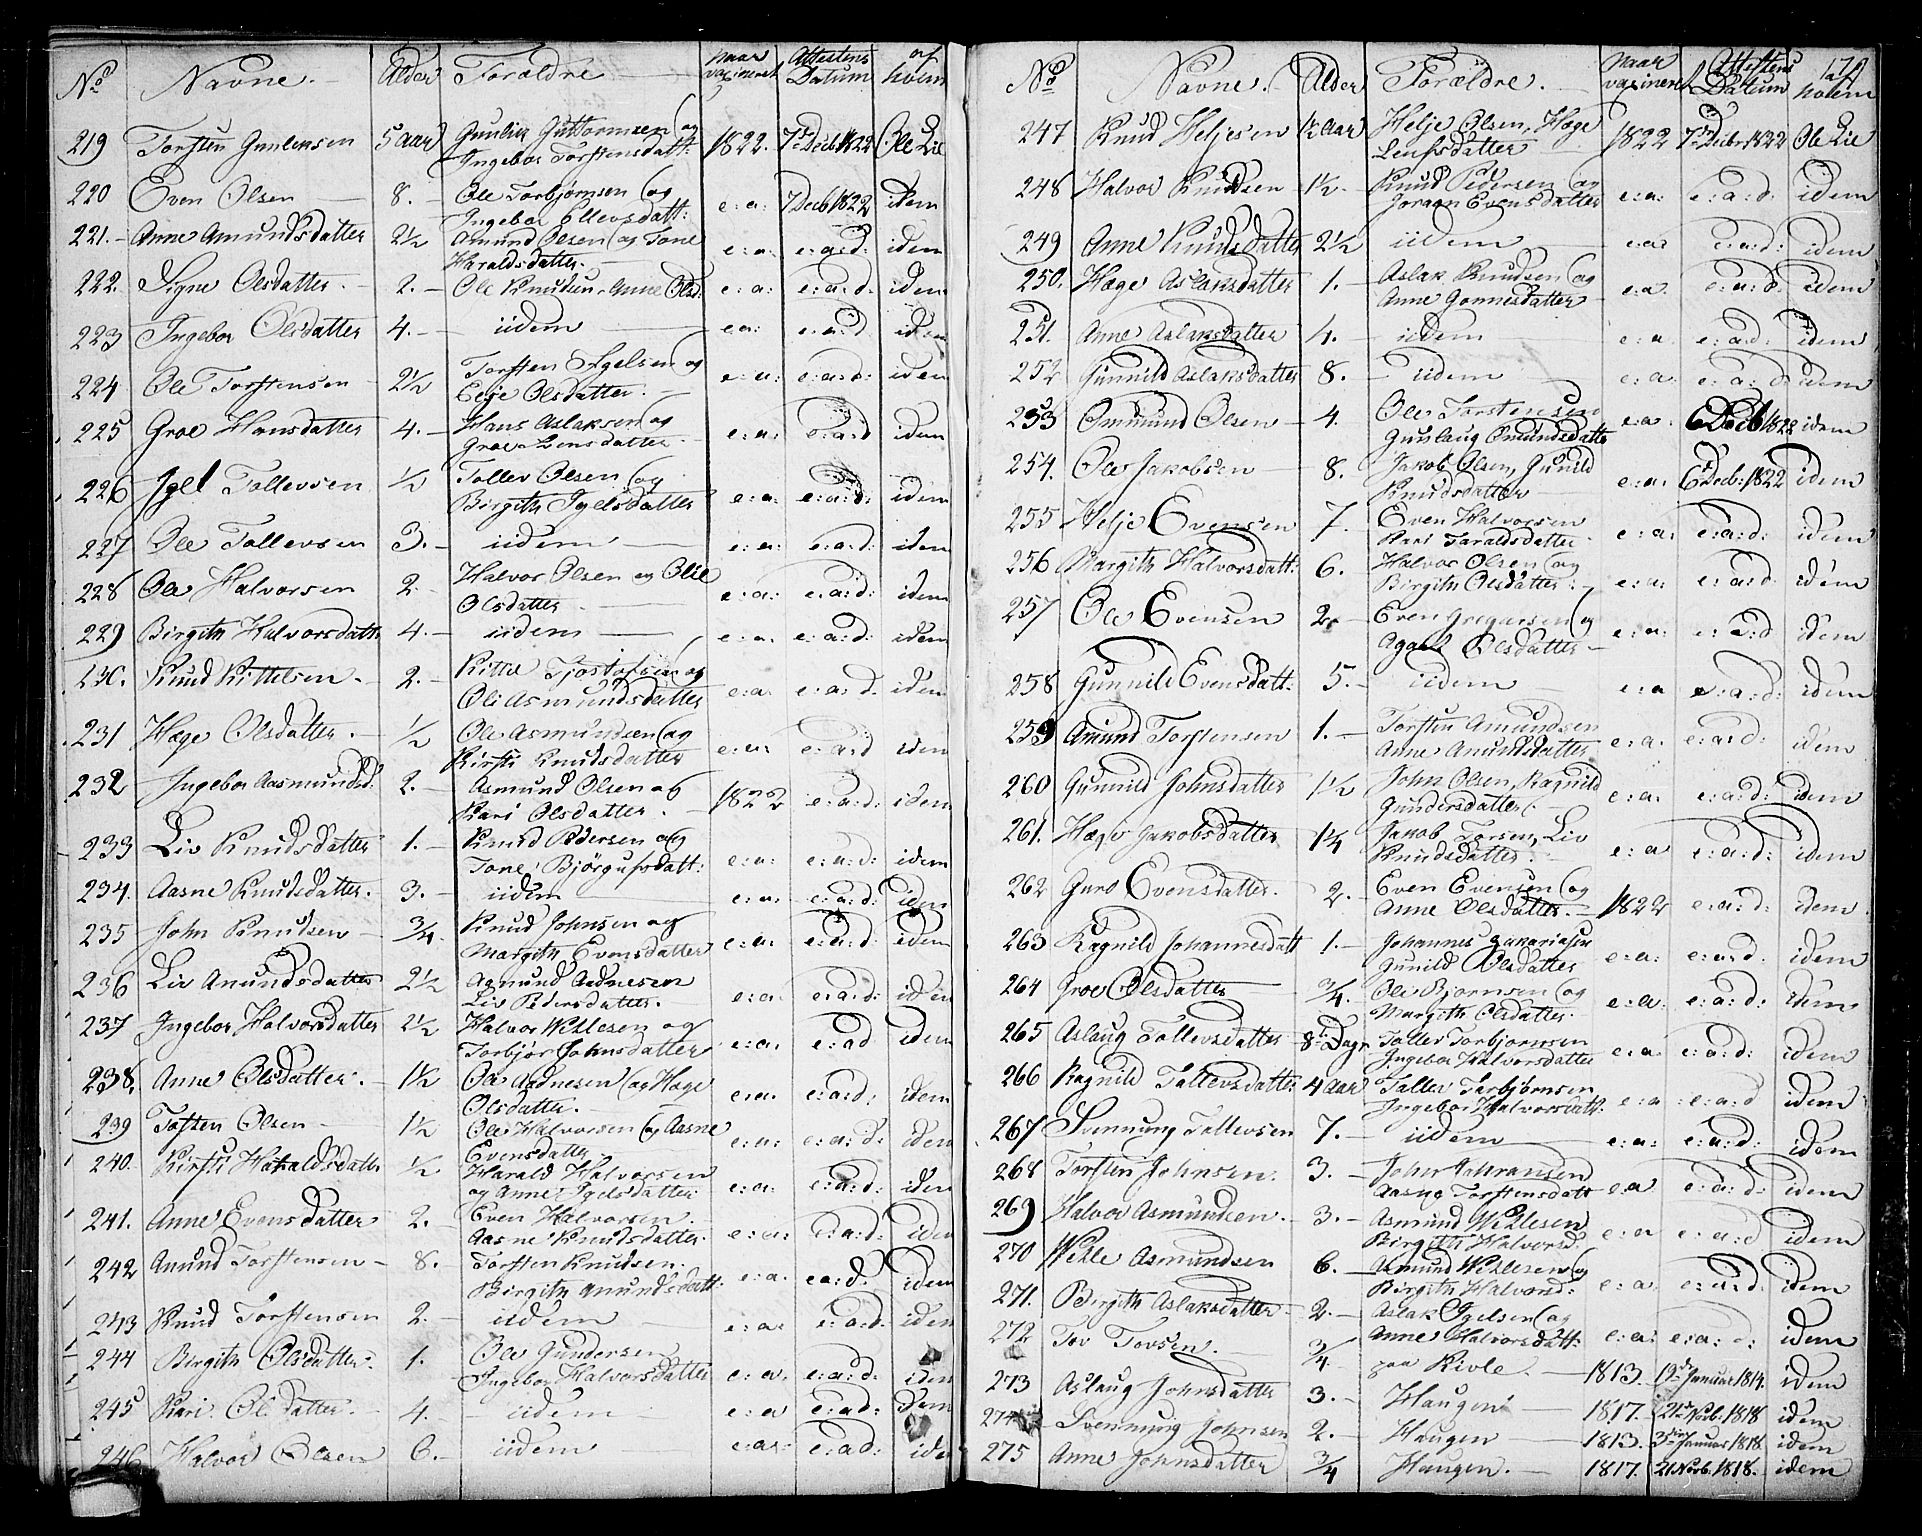 No Navne. Alder Forældre naar vaxineret Attestens Datum af hvem
219 Torsten Gunlensen 5 Aar Gunlies Guttormsen og Ingebor Torstensdatt: 1822. 7de Decb 1822 Ole Lie
220 Even Olsen 8. Ole Torbjørnsen og Ingebor Ellevsdatt: e: a: 7 Decb 1822 idem
221. Anne Amundsdatter 2½ Amund Olsen og Tone Haraldsdatter. e: a: e: a: d: idem
222. Signe Olsdatter. 2. Ole Knudsen, Anne Olsd: e: a: e: a: d: idem
223 Ingebor Olsdatter 4. iidem e: a: e: a: d: idem
224 Ole Torstensen 2½ Torsten Igelsen og Eije Olsdatter. e: a: e: a: d: idem
225 Groe Hansdatter 4. Hans Aslaksen og Groe Jensdatter e: a: e: a: d idem
226 Igel Tollevsen ½ Tollev Olsen og Birgith Igelsdatter e: a: e: a: d: idem
227 Ole Tollevsen 3. iidem e: a: e: a: d: idem
228 Ole Halvorsen 2. Halvor Olsen og Olie Olsdatter. e: a: e: a: d: idem
229 Birgith Halvorsdatt: 4. iidem e: a: e: a: d: idem
230. Knud Kittelsen. 2. Kittel Tjostofsen og Oli Asmundsdatter e: a: e: a: d: idem
231 Hæge Olsdatter. ½ Ole Asmundsen og Kirsti Knudsdatter e: a: e: a: d idem
232 Ingebor Aasmundsd. 2. Asmund Olsen og Kari Olsdatter. 1822 e: a: d: idem
233 Liv Knudsdatter 1. Knud Pedersen og Tone Bjørgufsdatt: e: a: e: a: d: idem
234. Aasne Knudsdatter. 3. iidem e: a: e: a: d: idem
235 John Knudsen ¾. Knud Johnsen og Margith Evensdatter e: a: e: a: d: idem
236 Liv Amundsdatter 2½ Amund Aadnesen Liv Pedersdatter. e: a: e: a: d: idem
237 Ingebor Halvorsdatter 2½ Halvor Wetlesen og Torbjør Johnsdatter e: a: e: ad idem
238. Anne Olsdatter. 1½ Ole Aadnesen og Hæge Olsdatter. e: a: e: a: d: idem
239 Tosten Olsen 1½ Ole Halvorsen og Aasne Evensdatter e: a: e: a: d: idem
240. Kirsti Haraldsdatter ½ Harald Halvorsen og Anne Igelsdatter e: a: e: a: d: idem
241. Anne Evensdatter 2. Even Halvorsen. Aasne Knudsdatter. e: a: e: a: d: idem
242 Amund Torstensen 8. Torsten Knudsen. Birgith Amundsdatt: e: a: e a: d: idem
243 Knud Torstensen 2. iidem e: a: e: a: d: idem
244 Birgith Olsdatter. 1. Ole Gundersen Ingebor Halvorsdatter e: a: e: a: d: idem
245 Kari Olsdatter. 4. iidem e: a e: a: d: idem
246 Halvor Olsen 6. iidem e: a: e: ad: idem
No Navne. Alder Forældre. naar vaxineret Attestens Datum af hvem 179
247 Knud Heljesen 1½ Aar Helje Olsen, Hæge Leufsdatter 1822 7de Decbr 1822 Ole Lie
248 Halvor Knudsen 1½ Knud Pedersen og Joraan Evensdatter e: a: e: a: d: idem
249 Anne Knudsdatter 2½ iidem e: a: e: a: d: idem
250. Hæge Aslaksdatter 1. Aslak Knudsen og Anne Gonnisdatter e: a: e: a: d: idem
251. Anne Aslaksdatter 4. iidem e: a e: a: d: idem
252 Gunnild Aslaksdatter 8. iidem e: a: e: a: d: idem
253 Ommund Olsen 4. Ole Torstensen Gunlaug Omundsdatte e: a: 6 Decb 1822 idem
254. Ole Jakobsen 8. Jakob Olsen, Gunild Knudsdatter e: a: 6 Decb: 1822 idem
255 Helje Evensen 7. Even Halvorsen Kari Taraldsdatter e: a: e: a: d: idem
256 Margith Halvorsdatt: 6. Halvor Olsen og Birgith Olsdatter: e: a: e: a: d: idem
257 Ole Evensen 2. Even Gregarsen og Agaat Olsdatter e: a: e: a: d idem
258 Gunnild Evensdatt: 5. iidem e: a e: a: d: idem
259 Amund Torstensen 1. Torsten Amundsen Anne Amundsdatter e: a: e: a: d: idem
260 Gunnild Johnsdatter 1½ John Olsen, Ragnild Gundersdatter. e: a: e: a: d: idem
261. Hæge Jakobsdatter 1¼ Jakob Torsen, Liv Knudsdatter. e: a e: a: d: idem
262 Guro Evensdatter. 2. Even Evensen og Anne Olsdatter. 1822 e: a: d: idem.
263 Ragnild Johannesdatt 1. Johannes Zakariasen Gunild Olsdatter e: a: e: a: d: idem
264 Groe Olsdatter ¾. Ole Bjørnsen og Margith Olsdatter. e: a: e: a: d: idem
265 Aslaug Tollevsdatter 8t Dage Tallev Torbjørnsen Ingebor Halvorsdatter e: a: e: a: d: idem
266 Ragnild Tallevsdatter 4 Aar Tallev Torbjørnsen Ingebor Halvorsdatt: e: a e: a: d idem
267 Svennung Tollevsen 7. iidem e: a: e: a: d: idem
268 Torsten Johnsen. 3. John Johnansen Aasne Torstensdatt e: a e: a: d: idem
269 Halvor Asmundsen. 3. Asmund Wetlesen Birgith Halvorsd. e: a e: a: d idem
270 Wetle Asmundsen 6. Asmund Wetlesen og Birgith Halvorsd: e: a: e: a: d: idem
271. Birgith Aslaksdatter 2. Aslak Igelsen og Anne Halvorsdatt: e: a: e: a: d: idem
272 Tov Tovsen. ¾ paa Kivle. 1813. 19de Januar 1814. idem
273 Aslaug Johnsdatter 3. Haugen 1817. 21de Novb: 1818 idem
274 Svennung Johnsen 2. Haugen 1813. 3die Januar 1818. idem
275 Anne Johnsdatter ¾ Haugen. 1817. 21 Novb. 1818. idem